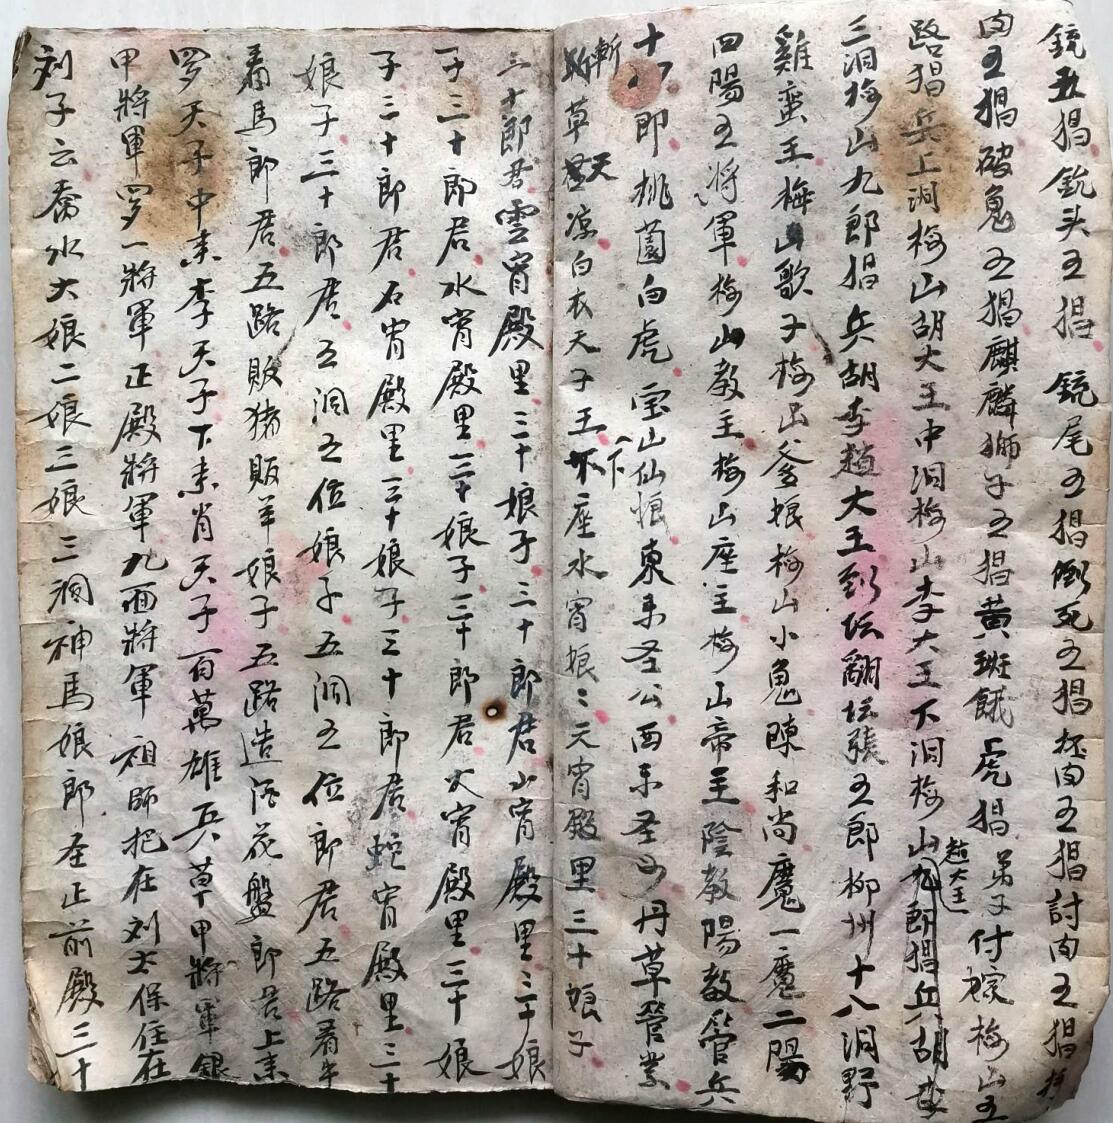 銃五猖銃头五猖 銃尾五猖倒死五猖 五猖討肉五猖
肉五猖破鬼五猖麒麟獅子五猖黄斑餓虎猖 弟子付 梅山五
路猖兵上洞梅山胡大王中洞梅山李大王下洞梅山趙大王九郎猖兵胡李
三洞梅山九郎猖兵胡李趙大王到坛翻坛張五郎柳州十八洞野
雞蛮王梅山歌子梅山 娘梅山小鬼陳和尚魔一魔二陽
四陽五将軍梅山教主梅山座主梅山帝主陰教陽教管兵
十八郎桃園白虎宝山仙娘東来圣公西来圣母丹草管業
斬草 天凉白衣天子王下座水宵娘〻元宵殿里三十娘子
三十郎君雲宵殿里三十娘子三十郎君山宵殿里三十娘
子三十郎君水宵殿里三十娘子三十郎君火宵殿里三十娘
子三十郎君石宵殿里三十娘子三十郎君 宵殿里三十
娘子三十郎君五洞五位娘子五洞五位郎君五路看牛
看馬郎君五路販猪販羊娘子五路造酒花盤郎君上来
罗天子中来李天子下来肖天子百萬雄兵草甲將軍銀
甲將軍罗一將軍正殿將軍九面將軍 祖師把在刘 保住在
刘子云喬水大娘二娘三娘三洞神馬娘郎圣正前殿三十